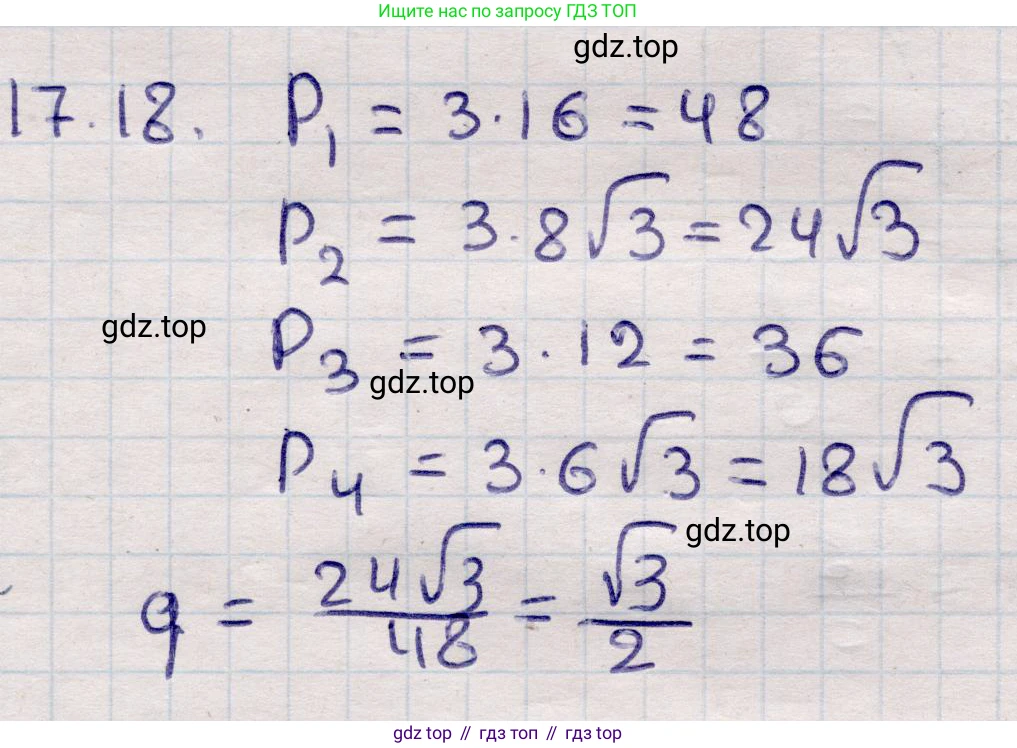 Ищите нас по запросу ГДЗ ТОП
gdz.top
17.18. P₁ = 3·16 = 48
P₂ = 3·8√3 = 24√3
gdz.top
P₃ = 3·12 = 36
gdz.top
P₄ = 3·6√3 = 18√3
gdz.top
q = 24√3/48 = √3/2
gdz.top // гдз топ // gdz top